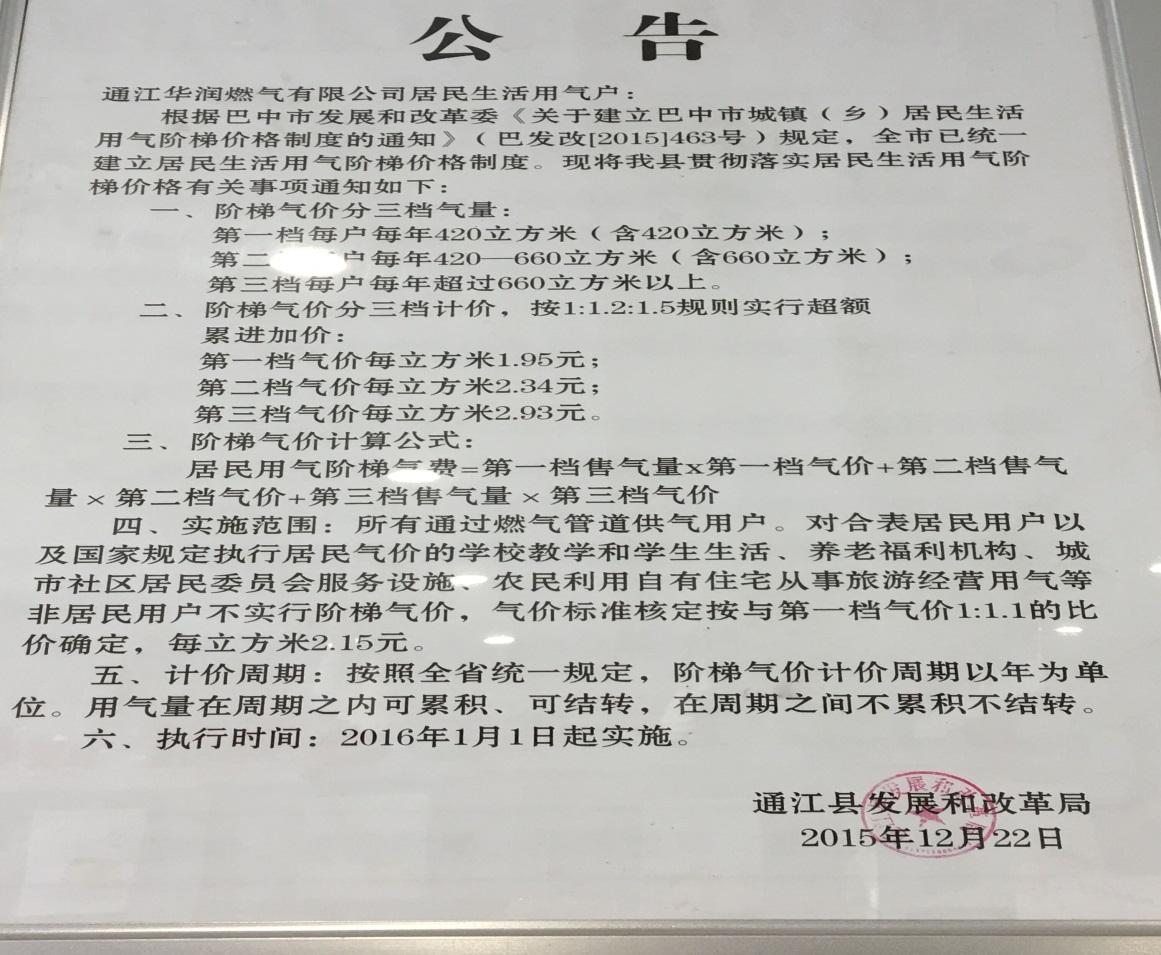 公 告
通江华润燃气有限公司居民生活用气户：
根据巴中市发展和改革委《关于建立巴中市城镇（乡）居民生活
用气阶梯价格制度的通知》（巴发改[2015]463号）规定，全市已统一
建立居民生活用气阶梯价格制度。现将我县贯彻落实居民生活用气阶
梯价格有关事项通知如下：
一、阶梯气价分三档气量：
第一档每户每年420立方米（含420立方米）；
第二 户每年420—660立方米（含660立方米）；
第三档每户每年超过660立方米以上。
二、阶梯气价分三档计价，按1:1.2:1.5规则实行超额
累进加价：
第一档气价每立方米1.95元；
第二档气价每立方米2.34元；
第三档气价每立方米2.93元。
三、阶梯气价计算公式：
居民用气阶梯气费=第一档售气量x第一档气价+第二档售气
量×第二档气价+第三档售气量×第三档气价
四、实施范围：所有通过燃气管道供气用户。对合表居民用户以
及国家规定执行居民气价的学校教学和学生生活、养老福利机构、城
市社区居民委员会服务设施、农民利用自有住宅从事旅游经营用气等
非居民用户不实行阶梯气价，气价标准核定按与第一档气价1:1.1的比
价确定，每立方米2.15元。
五、计价周期：按照全省统一规定，阶梯气价计价周期以年为单
位。用气量在周期之内可累积、可结转，在周期之间不累积不结转。
六、执行时间：2016年1月1日起实施。
通江县发展和改革局
2015年12月22日